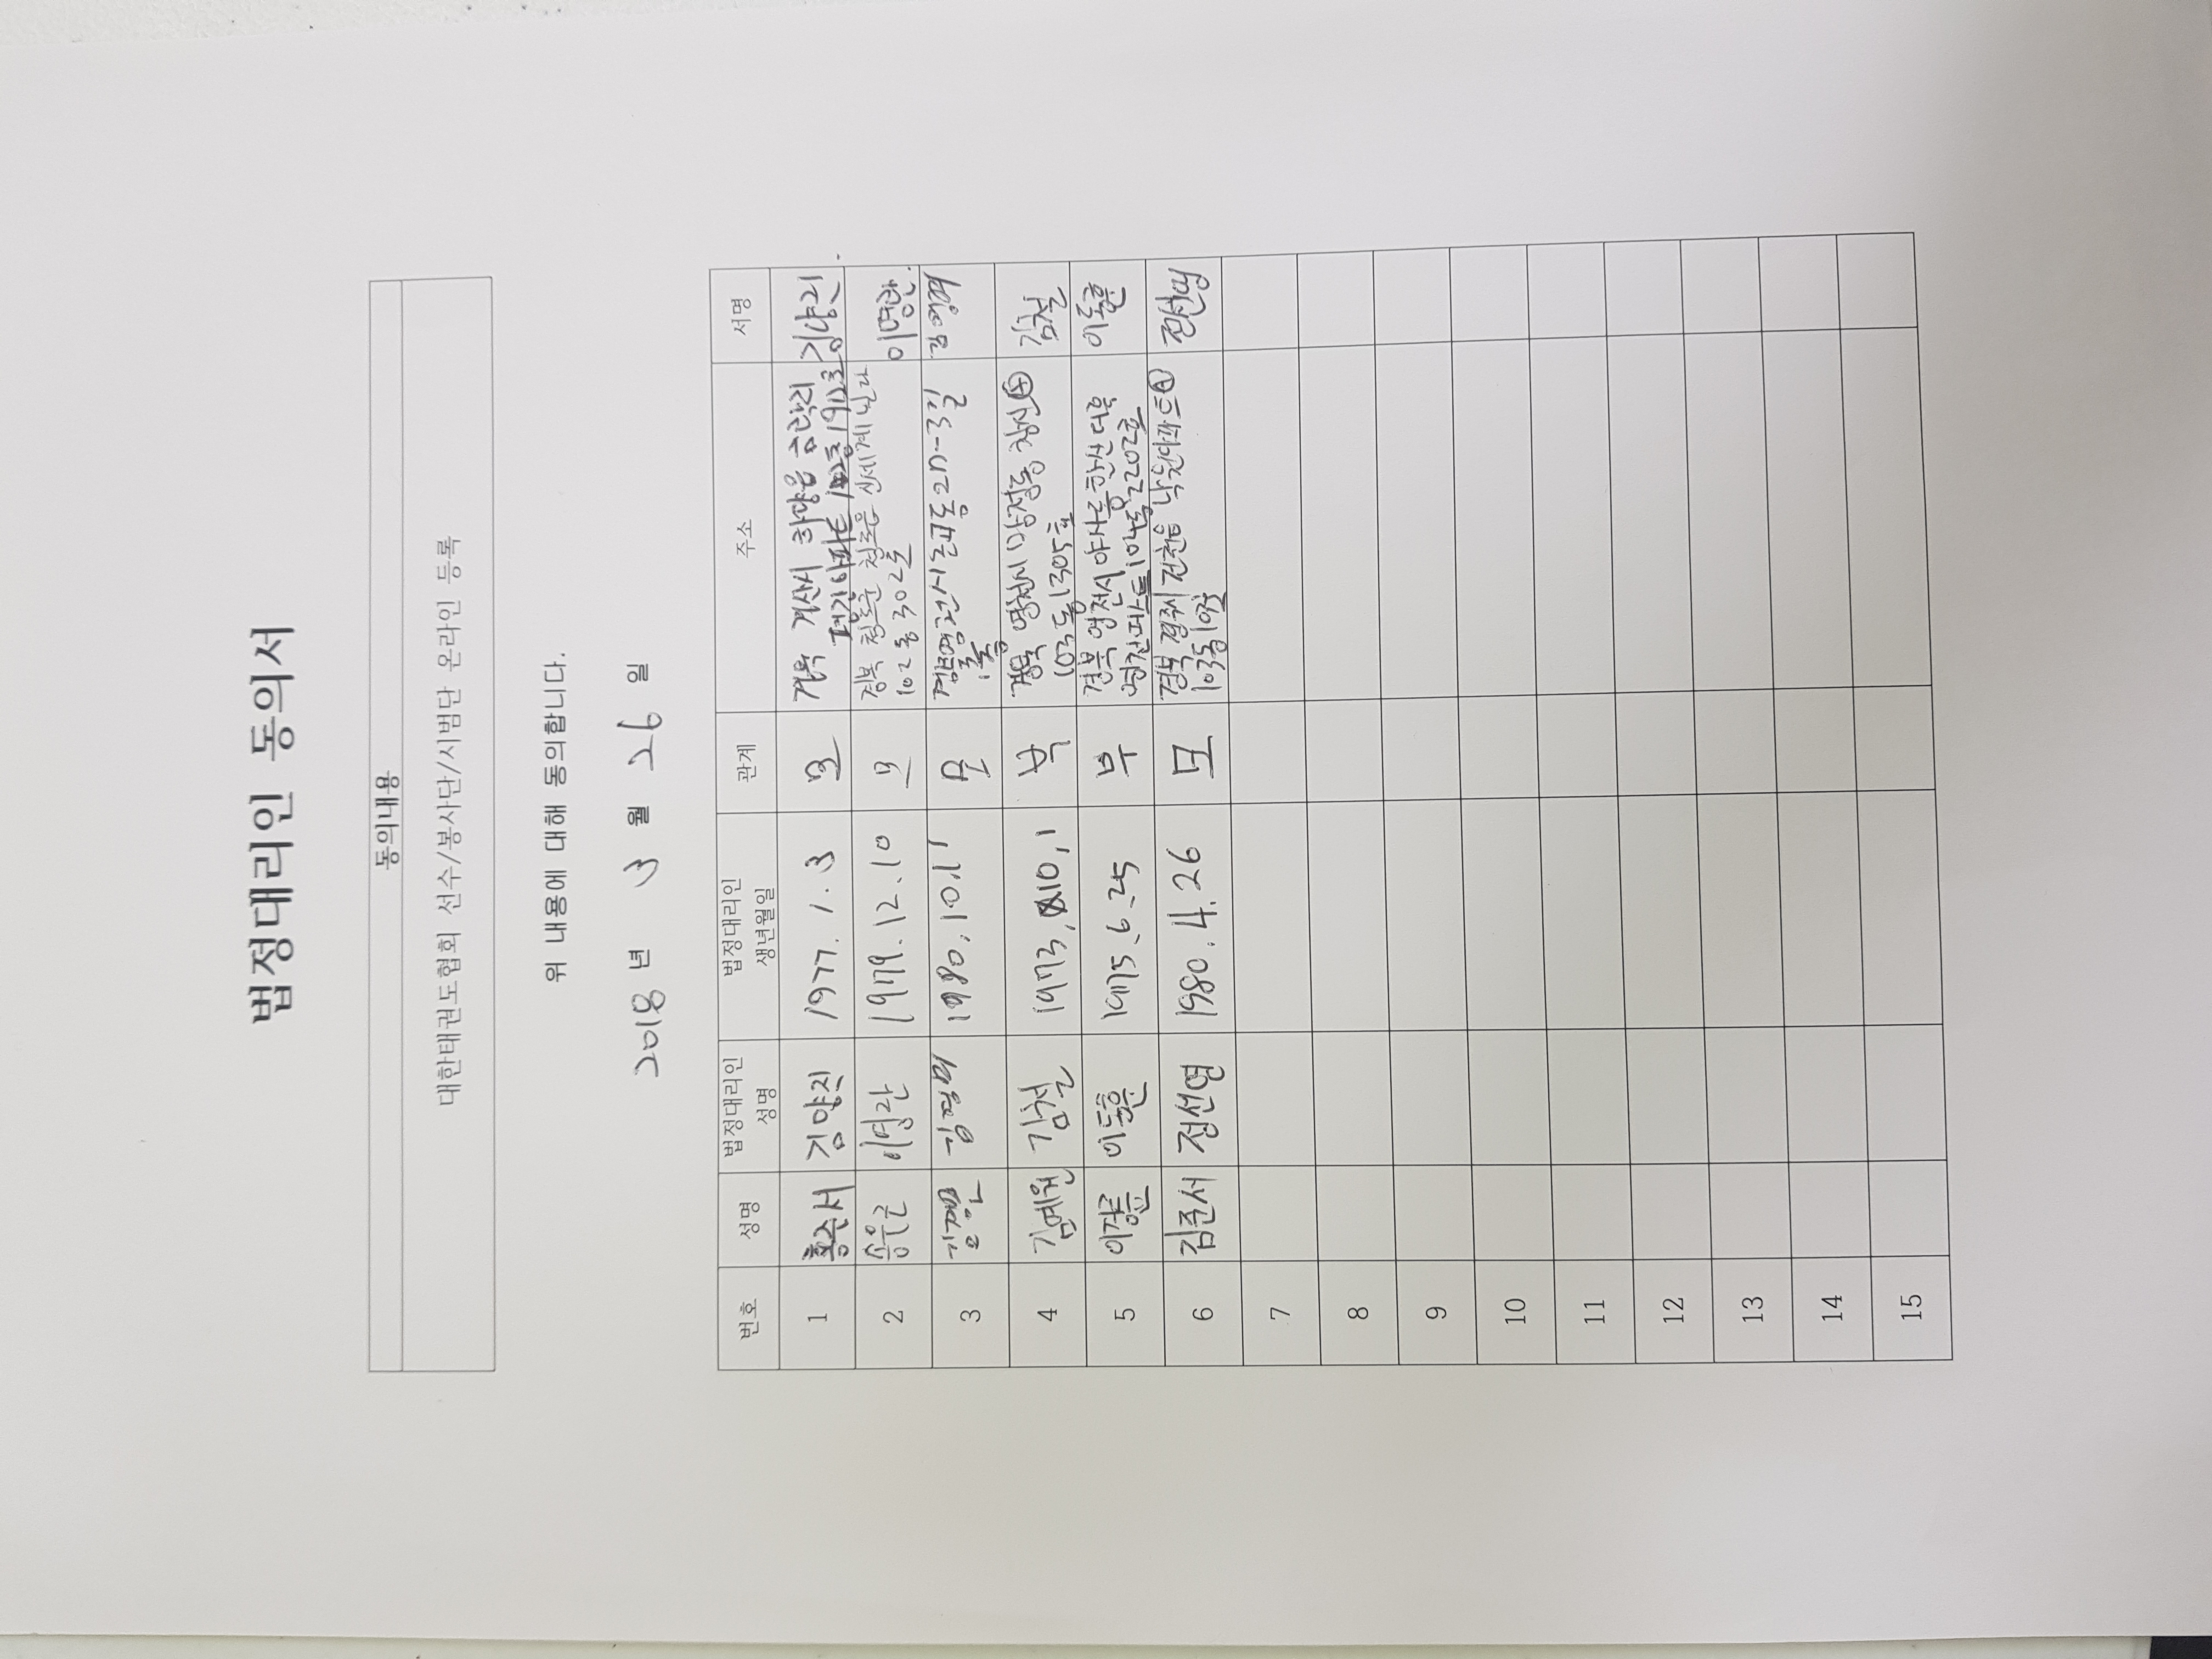 법정대리인 동의서
동의내용
대한태권도협회 선수/봉사단/시범단 온라인 등록
위 내용에 대해 동의합니다.
2018 년 3 월 26 일
번호 성명 법정대리인 성명 법정대리인 생년월일 관계 주소 서명
1 홍준서 김양진 1977. 1. 3 모 하양읍 금락리
1902호 김양진
2 송은근 이영란 1979. 12. 10 모 경북 청도군 청도읍 신세계빌라
102동 302호 이영란.
3 1980. 10. 11 모
4 김예원 김철 1973, 10, 1 부 경북 영천시 망정동 창신Ⓐ
103동 1305호 김철
5 이동훈 1975. 6. 25 부 경북 영천시 야사동 한신더휴
영천퍼스트 104동 2202호 이동훈
6 김준서 정선영 1980. 4. 26 모 경북 경주시 건천읍 낙원아파트Ⓐ
103동
7
8
9
10
11
12
13
14
15